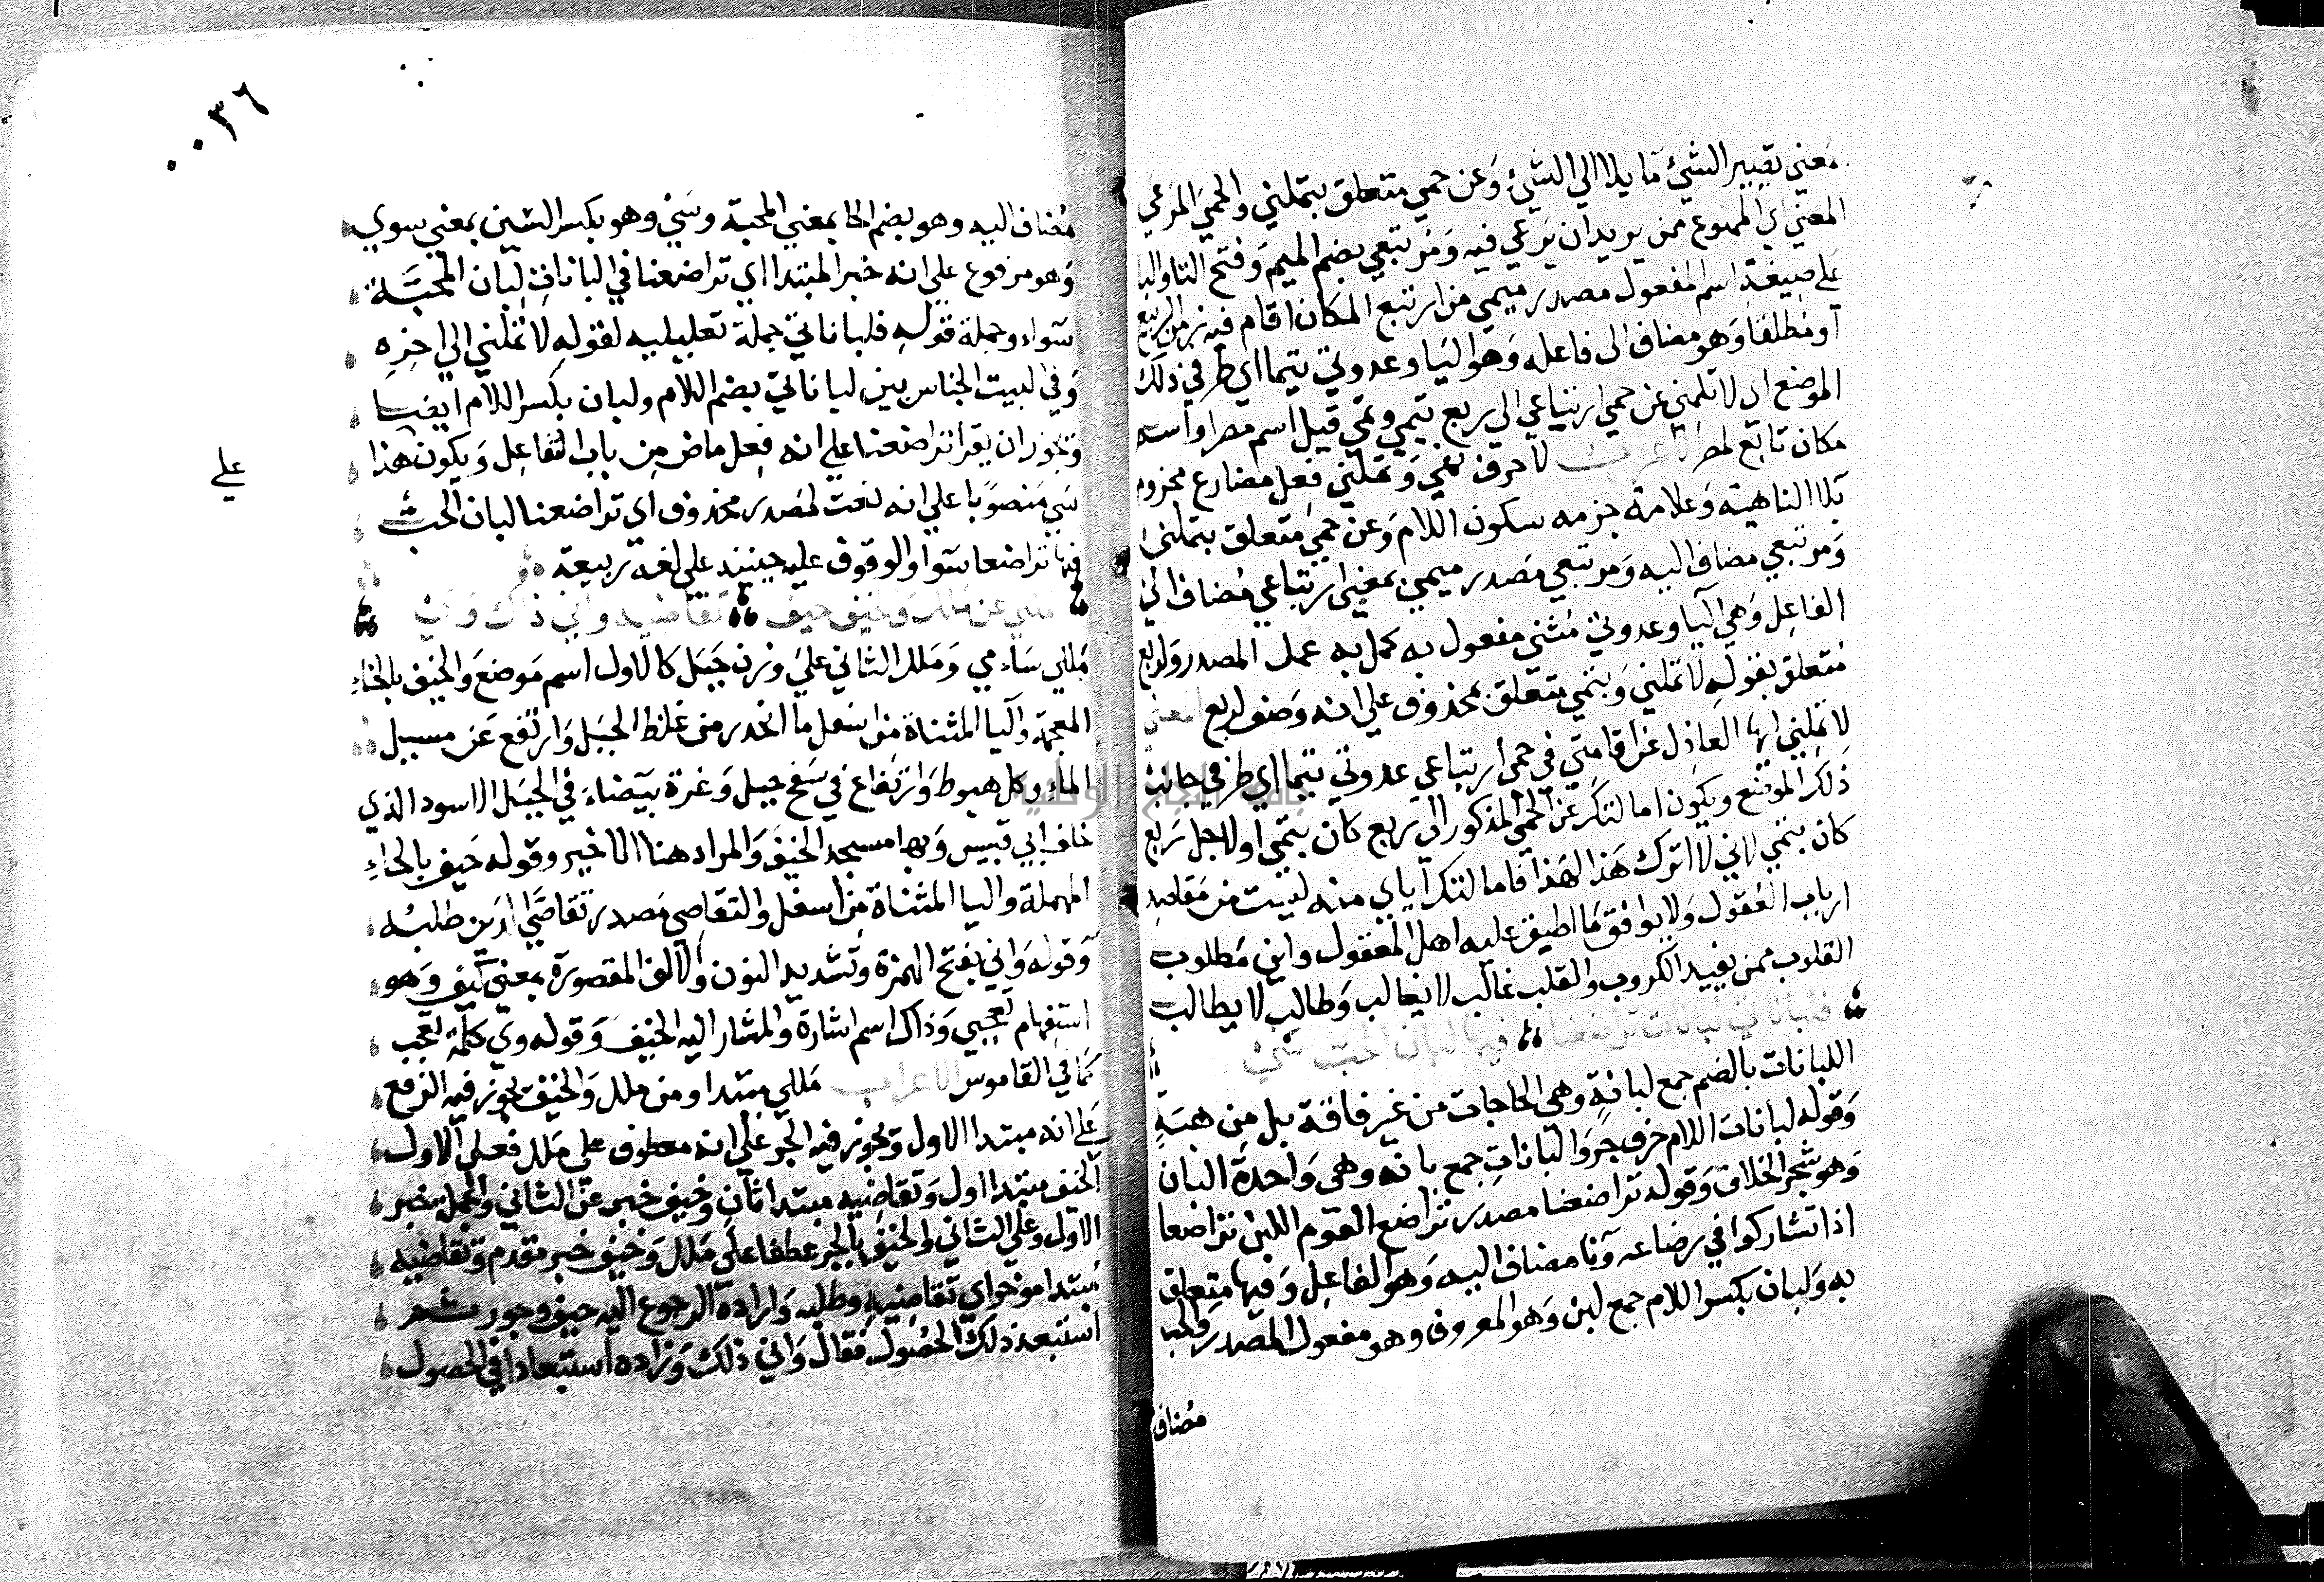 معني تصيير الشيء مايلا الي الشيء وعن حمي متعلق بتملني والحمي المرعي
المعني اي الممنوع ممن يريد ان يرعي فيه ومرتبعي بضم الميم وفتح التا والبا
علي صيغة اسم المفعول مصدر ميمي من ارتبع المكان اقام فيه زمن الربيع
او مطلقا وهو مضاف الى فاعله وهو اليا وعدوتي تيما اي طرفي ذلك
الموضع اي لا تلمني عن حمي ارتباعي الي ربع بتمي وتمي قيل اسم مصر او اسم
مكان تابع لمصر الاعراب لا حرف نهي وتملني فعل مضارع مجزوم
بلا الناهية وعلامة جزمه سكون اللام وعن حمي متعلق بتملني
ومرتبعي مضاف اليه ومرتبعي مصدر ميمي بمعني ارتباعي مضاف الي
الفاعل وهي اليا وعدوتي مثني مفعول به كمل به عمل المصدر ولربع
متعلق بقوله لا تملني وبتمي متعلق بمحذوف علي انه وصف لربع المعني
لا تملني ايها العاذل عن اقامتي في حمي ارتباعي عدوتي تيما اي طرفي جانب
ذلك الموضع ويكون امالتك عن الحمي المذكور الي ربع كان بتمي او لاجل ربع
كان بتمي لاني لا اترك هذا لهذا فامالتك اياي منه ليست من مقاصد
ارباب العقول ولا يوافق ما اطبق عليه اهل المعقول واين مطلوب
القلوب ممن يفيد الكروب والقلب غالب لا يغالب وطالب لا يطالب
فلباناتي لبانات تراضعنا فيها لبان الحب سي
اللبانات بالضم جمع لبانة وهي الحاجات من غير فاقة بل من همة
وقوله لبانات اللام حرف جر والبانات جمع بانة وهي واحدة البان
وهو شجر الخلاف وقوله تراضعنا مصدر تراضع القوم اللبن تراضعا
اذا تشاركوا في رضاعه ونا مضاف اليه وهو الفاعل وفيها متعلق
به ولبان بكسر اللام جمع لبن وهو المعروف وهو مفعول المصدر والحب
مضاف
٠٠٣٦
مضاف اليه وهو بضم الحا بمعني المحبة وسي وهو بكسر السين بمعني سوي
وهو مرفوع علي انه خبر المبتدا اي تراضعنا في البانات لبان المحبة
سواء وجملة قوله فلباناتي جملة تعليلية لقوله لا تملني الي اخره
وفي البيت الجناس بين لباناتي بضم اللام ولبان بكسر اللام ايضا
ويجوز ان يقرا تراضعنا علي انه فعل ماض من باب التفاعل ويكون هذا
علي
سي منصوبا علي انه نعت لمصدر محذوف اي تراضعنا لبان الحب
فيها تراضعا سوا والوقوف عليه حينيذ علي لغة ربيعة
مللي من ملل والخيف حيف تقاضيه واني ذاك وي
مللي سامي وملل الثاني علي وزن جبل كالاول اسم موضع والخيف بالخاء
المعجمة واليا المثناة من اسفل ما انحدر من غلظ الجبل وارتفع عن مسيل
الماء وكل هبوط وارتفاع في سفح جبل وغرة بيضاء في الجبل الاسود الذي
خلف ابي قبيس وبها مسجد الخيف والمراد هنا الاخير وقوله حيف بالحاء
المهملة واليا المثناة من اسفل والتقاضي مصدر تقاضي الدين طلبه
وقوله واني بفتح الهمزة وتشديد النون والالف المقصورة بمعني كيف وهو
استفهام تعجبي وذاك اسم اشارة والمشار اليه الخيف وقوله وي كلمة تعجب
كما في القاموس الاعراب مللي مبتدا ومن ملل والخيف يجوز فيه الرفع
علي انه مبتدا الاول ويجوز فيه الجر علي انه معطوف علي ملل فعلي الاول
الخيف مبتدا اول وتقاضيه مبتدا ثان وحيف خبر عن الثاني والجملة خبر
الاول وعلي الثاني والخيف بالجر عطفا علي ملل وحيف خبر مقدم وتقاضيه
مبتدا موخر اي تقاضيه وطلبه وارادة الرجوع اليه حيف وجور ثم
استبعد ذلك الحصول فقال واني ذلك وزاده استبعادا في الحصول